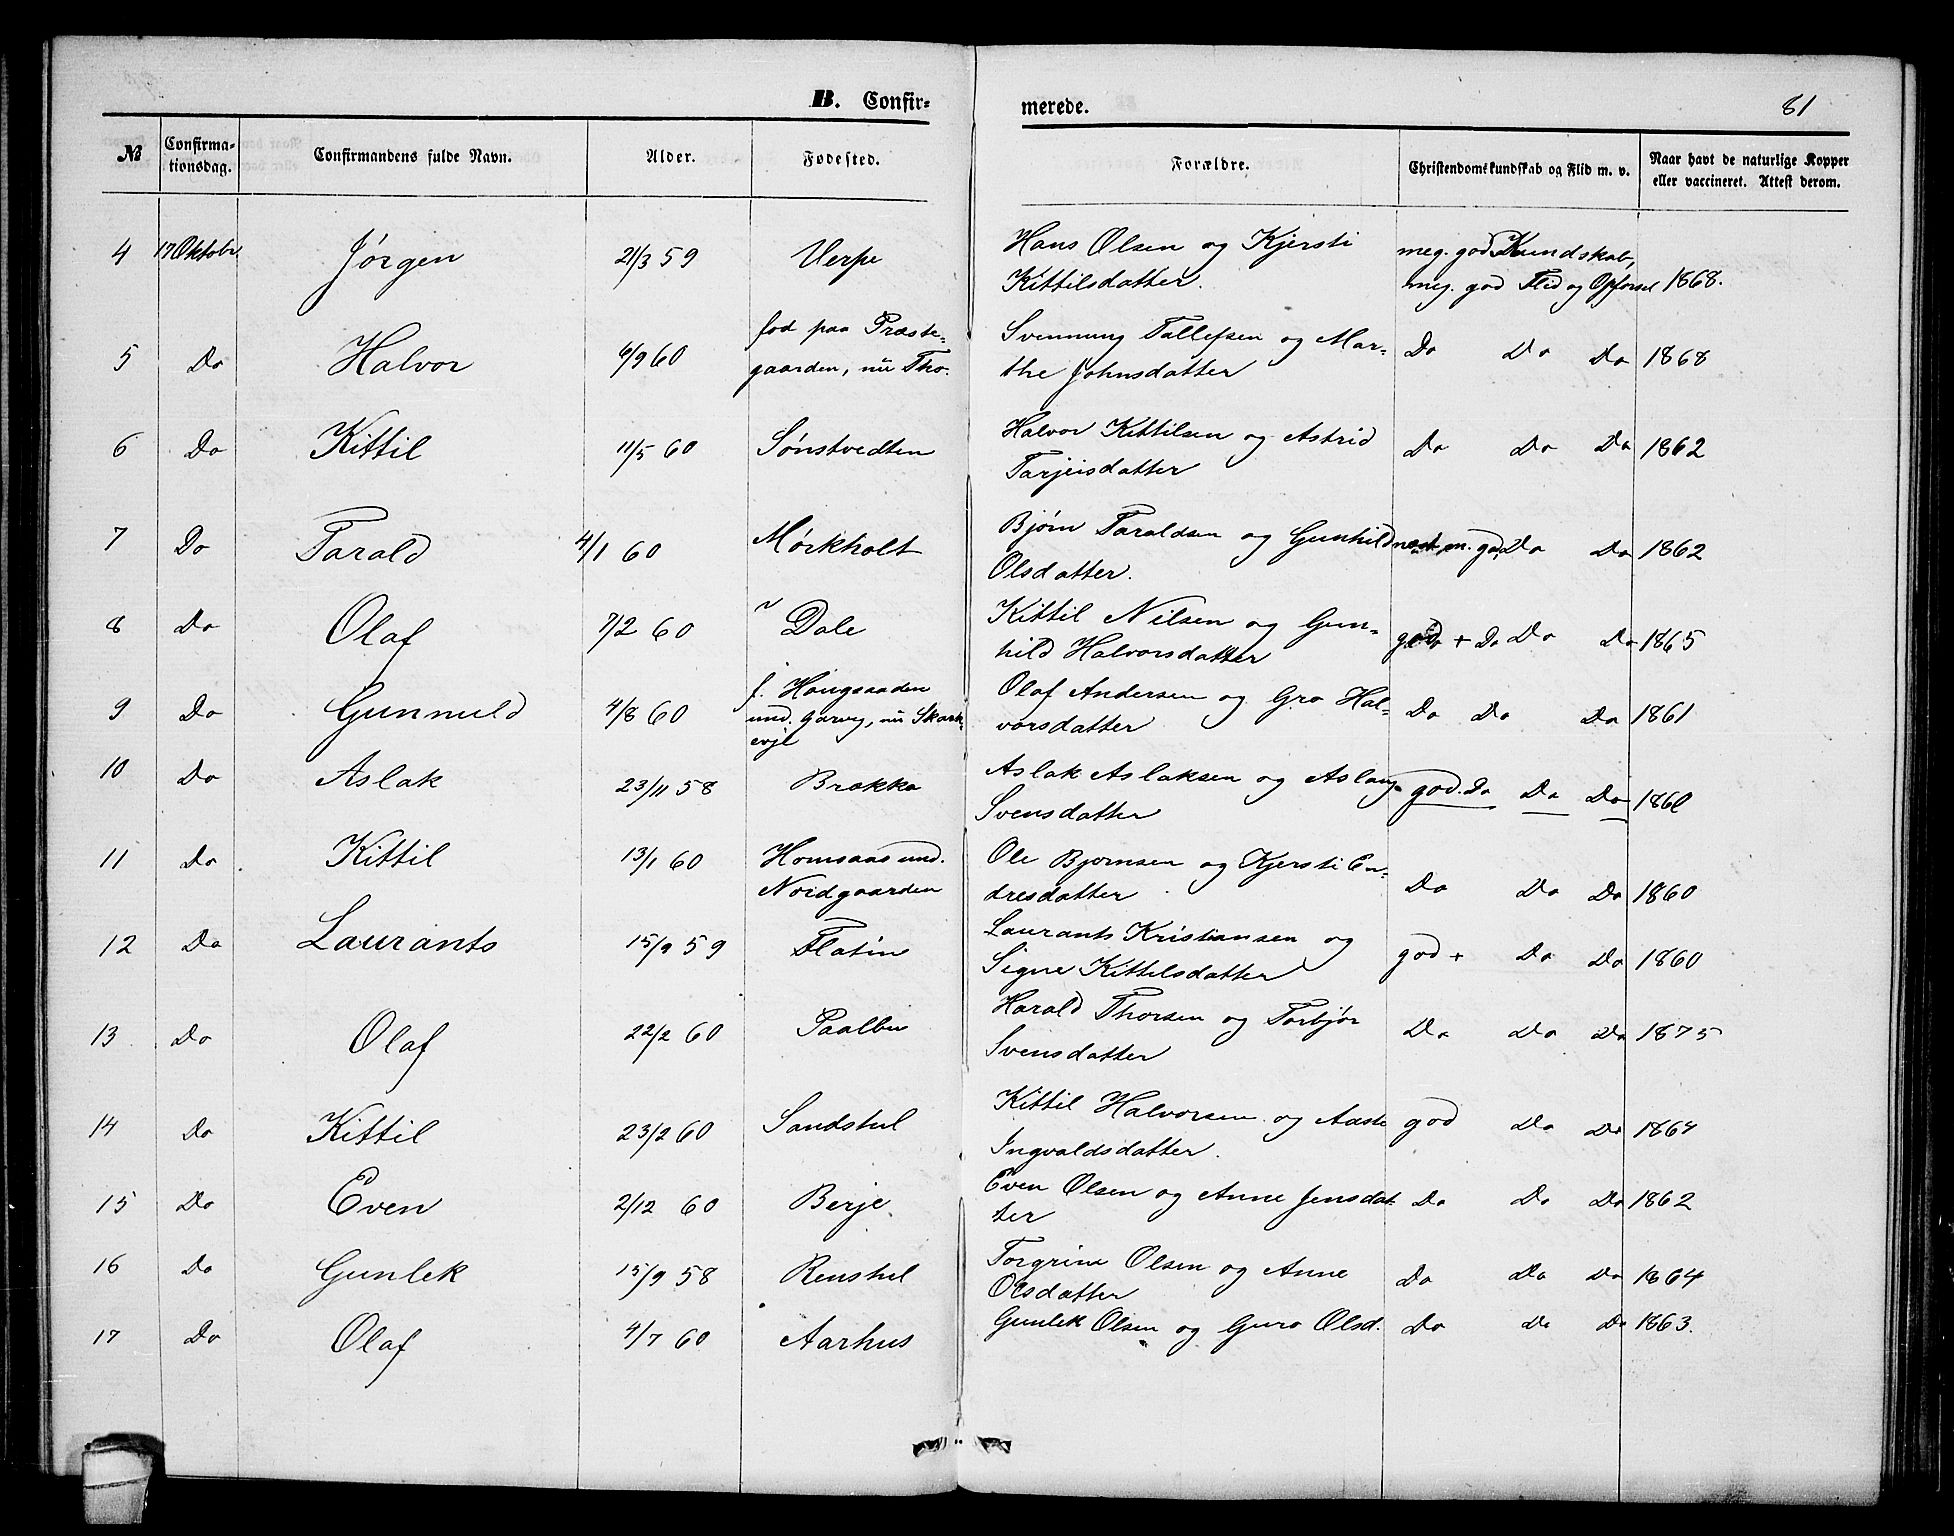 B. Confir-
merede.
81
№ Confirma-tionsdag. Confirmandens fulde Navn. Alder. Fødested. Forældre. Christendomskundskab og Flid m. v. Naar havt de naturlige Kopper eller vaccineret. Attest derom.
4 17 Oktobr Jørgen 21/3 59 Verpe Hans Olsen og Kjersti meg. god Kundskab,
Kittilsdatter. meg. god Flid og Opførsel 1868.
fød paa Præste-
5 Do Halvor 6/9 60 gaarden, nu Tho. Svennung Tallefsen og Mar- Do Do Do 1868
the Johnsdatter
6 Do Kittil 11/5 60 Sønstvedten Halvor Kittilsen og Astrid Do Do Do 1862
Tarjeisdatter
7 Do Tarald 4/1 60 Mørkholt Bjørn Taraldsen og Gunhild næst m. god, Do Do 1862
Olsdatter.
8 Do Olaf 7/2 60 Dale Kittil Nilsen og Gun- god + Do Do Do 1865
hild Halvorsdatter
f. Haugaaden
9 Do Gunnuld 4/8 60 und. Garvig, nu Skark- Olaf Andersen og Gro Hal- Do Do Do 1861
evje vorsdatter
10 Do Aslak 23/11 58 Brække Aslak Aslaksen og Aslaug god. Do Do Do 1860
Svensdatter
11 Do Kittil 13/1 60 Homsaas und. Ole Bjørnsen og Kjersti En- Do Do Do 1860
Nordgaarden dresdatter
12 Do Laurants 15/9 59 Flatin Laurants Kristiansen og god + Do Do 1860
Signe Kittilsdatter
13 Do Olaf 22/2 60 Paalbu Harald Thorsen og Torbjør Do Do Do 1875
Svensdatter
14 Do Kittil 23/2 60 Sandshul Kittil Halvorsen og Aaste god Do Do 1864
Ingvaldsdatter.
15 Do Even 2/12 60 Berje. Even Olsen og Anne Jensdat- Do Do Do 1862
ter
16 Do Gunlek 15/9 58 Renshul Torgrim Olsen og Anne Do Do Do 1864
Olsdatter
17 Do Olaf 4/7 60 Aarhus Gunlek Olsen og Guro Olsd. Do Do Do 1863.